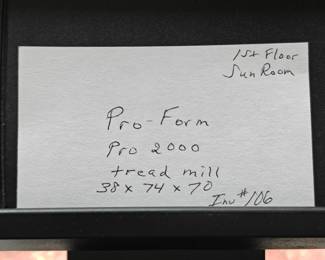 1st Floor
Sun Room
Pro-Form
Pro 2000
tread mill
38 x 74 x 70
Inv #106